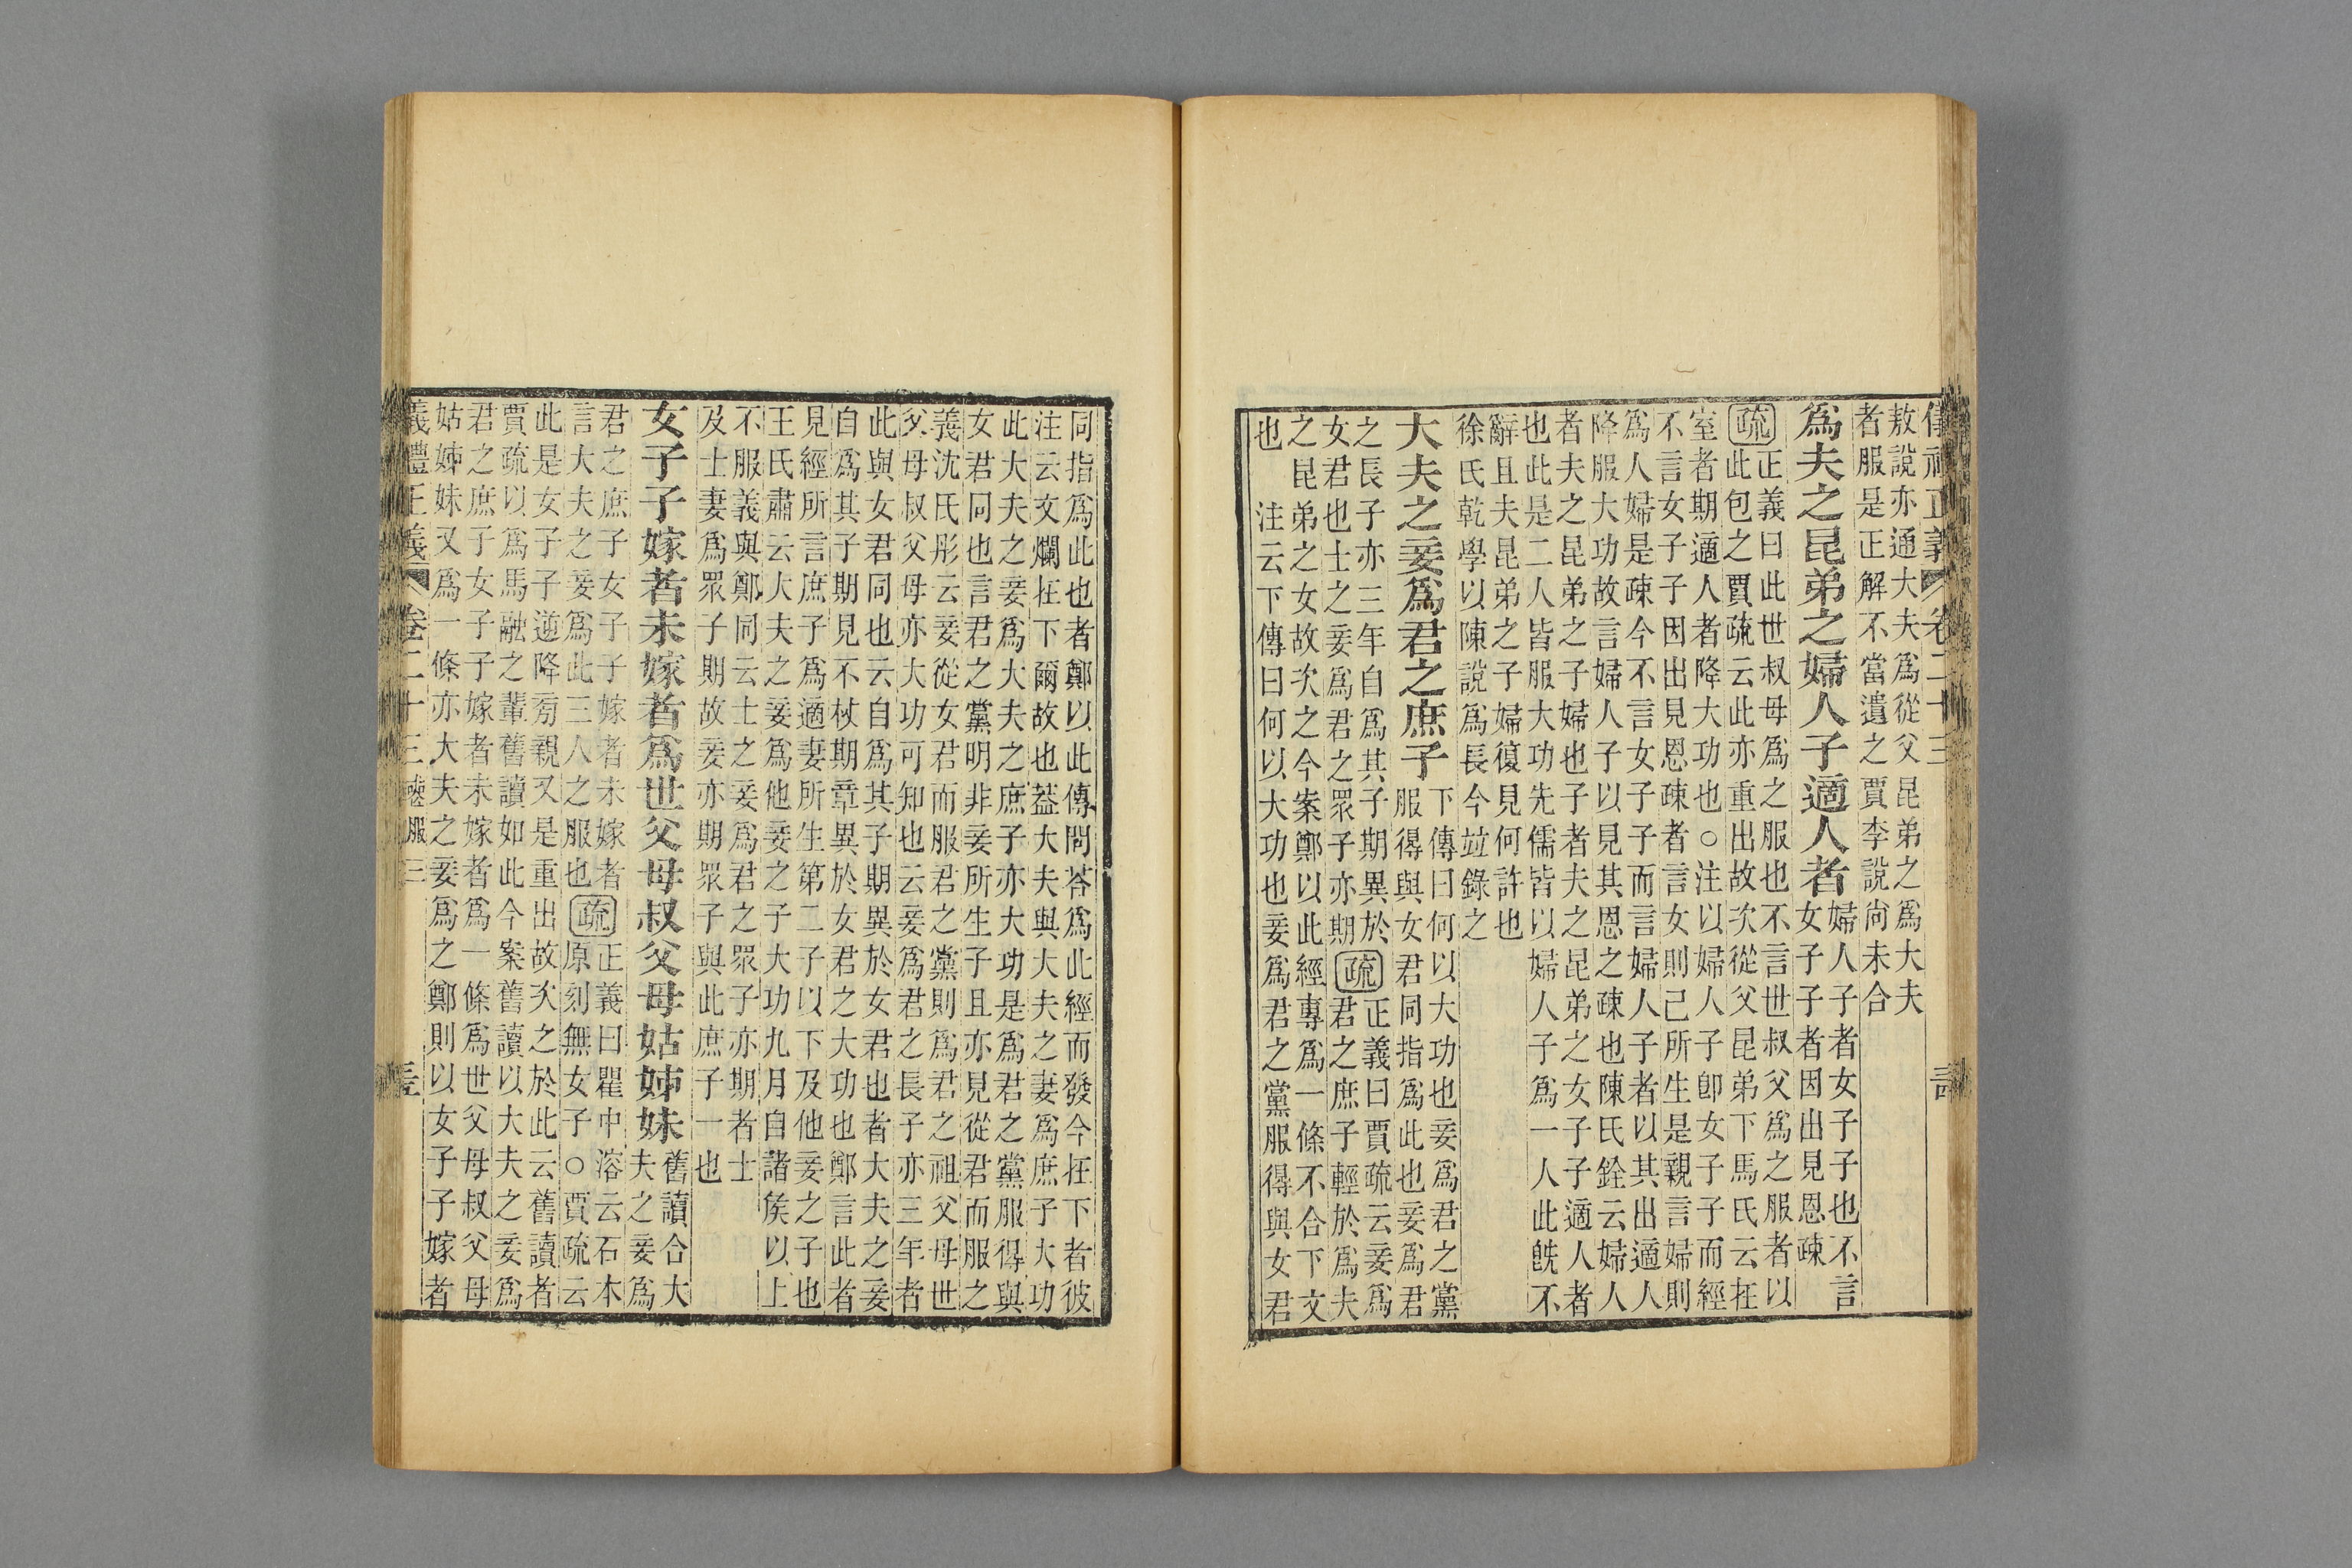 敖說亦通大夫爲從父昆弟之爲大夫
者服是正解不當遺之賈李說尚未合
爲夫之昆弟之婦人子適人者
婦人子者女子子也不言
女子子者因出見恩疎
疏正義曰此世叔母爲之服也不言世叔父爲之服者以
此包之賈疏云此亦重出故次從父昆弟下馬氏云在
室者期適人者降大功也○注以婦人子卽女子子而經
不言女子子因出見恩疎者言女則己所生是親言婦則
爲人婦是疎今不言女子子而言婦人子者以其出適人
降服大功故言婦人子以見其恩之疎也陳氏銓云婦人
者夫之昆弟之子婦也子者夫之昆弟之女子子適人者
也此是二人皆服大功先儒皆以婦人子爲一人此旣不
辭且夫昆弟之子婦復見何許也
徐氏乾學以陳說爲長今竝錄之
大夫之妾爲君之庶子
下傳曰何以大功也妾爲君之黨
服得與女君同指爲此也妾爲君
之長子亦三年自爲其子期異於
女君也士之妾爲君之眾子亦期
疏正義曰賈疏云妾爲
君之庶子輕於爲夫
之昆弟之女故次之今案鄭以此經專爲一條不合下文
也 注云下傳曰何以大功也妾爲君之黨服得與女君
同指爲此也者鄭以此傳問荅爲此經而發今在下者彼
注云文爛在下爾故也葢大夫與大夫之妻爲庶子大功
此大夫之妾爲大夫之庶子亦大功是爲君之黨服得與
女君同也言君之黨明非妾所生子且亦見從君而服之
義沈氏彤云妾從女君而服君之黨則爲君之祖父母世
父母叔父母亦大功可知也云妾爲君之長子亦三年者
此與女君同也云自爲其子期異於女君也者大夫之妾
自爲其子期見不杖期章異於女君之大功也鄭言此者
見經所言庶子爲適妻所生第二子以下及他妾之子也
王氏肅云大夫之妾爲他妾之子大功九月自諸矦以上
不服義與鄭同云士之妾爲君之眾子亦期者士
及士妻爲眾子期故妾亦期眾子與此庶子一也
女子子嫁者未嫁者爲世父母叔父母姑姊妹
舊讀合大
夫之妾爲
君之庶子女子子嫁者未嫁者
言大夫之妾爲此三人之服也
疏正義曰瞿中溶云石本
原刻無女子○賈疏云
此是女子子逆降旁親又是重出故次之於此云舊讀者
賈疏以爲馬融之輩舊讀如此今案舊讀以大夫之妾爲
君之庶子女子子嫁者未嫁者爲一條爲世父母叔父母
姑姊妹又爲一條亦大夫之妾爲之鄭則以女子子嫁者